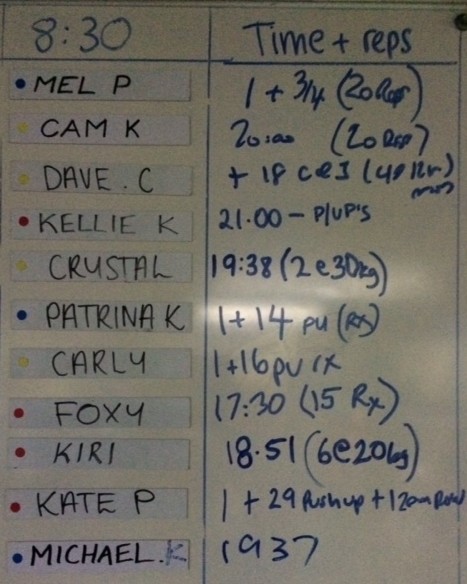 8:30 Time + reps
MEL P 1 + 3/4 (20 Reps)
CAM K 20:00 (20 Rep)
DAVE . C + 18 Cal (40
KELLIE K 21.00 - P/UP'S
CRYSTAL 19:38 (2 @ 30kg)
PATRINA K 1 + 14 pu (Rx)
CARLY 1+16 pu rx
FOXY 17:30 (15 Rx)
KIRI 18.51 (6@20kg)
KATE P 1 + 29 Pushup + 120m Row
MICHAEL.K 1937